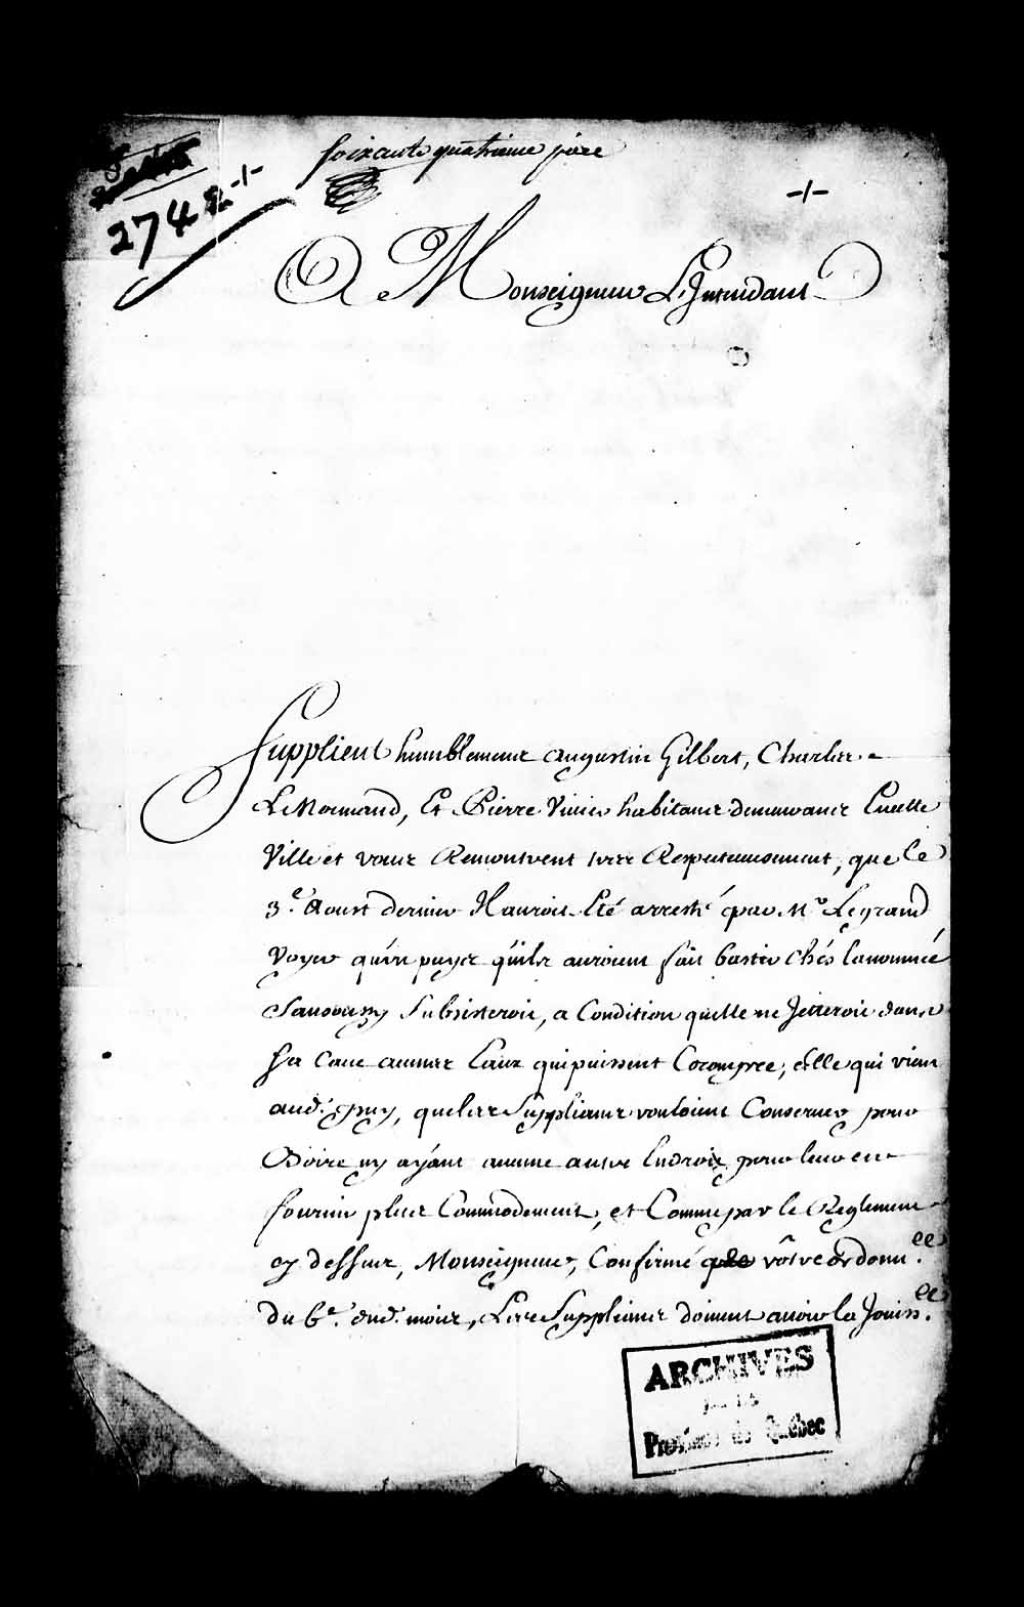 soixante quatrieme piece
274 2 -/-
-/-
A Monseigneur L'Intendant
Supplient humblement augustin Gilbert, Charles
LeNormand, Et Pierre habitants demeurants En cette
Ville et vous Remontrent tres Respectueusement, que le
3.e Aoust dernier Il auroit Eté arresté par Mr Legrand
Voyer qu'un puyts qu'ils auroient fait bastir chés la nommée
Sansoucy Subsisteroit, a Condition quelle ne Jetteroit dans
sa Cour aucunes Eaux qui puissent Corompre, Celle qui vient
aud. puy, que les Suppliants vouloient Conserver pour
Boire ny ayant aucune autre Endroit pour leur en
fournir plus Commodement, et Comme par le Reglement
cy dessus, Monseigneur, Confirmé votre ordonn.ce
du 6e. dud. mois, Les Suppliants doivent avoir la Jouiss.ce
ARCHIVES
de la
Province de Québec